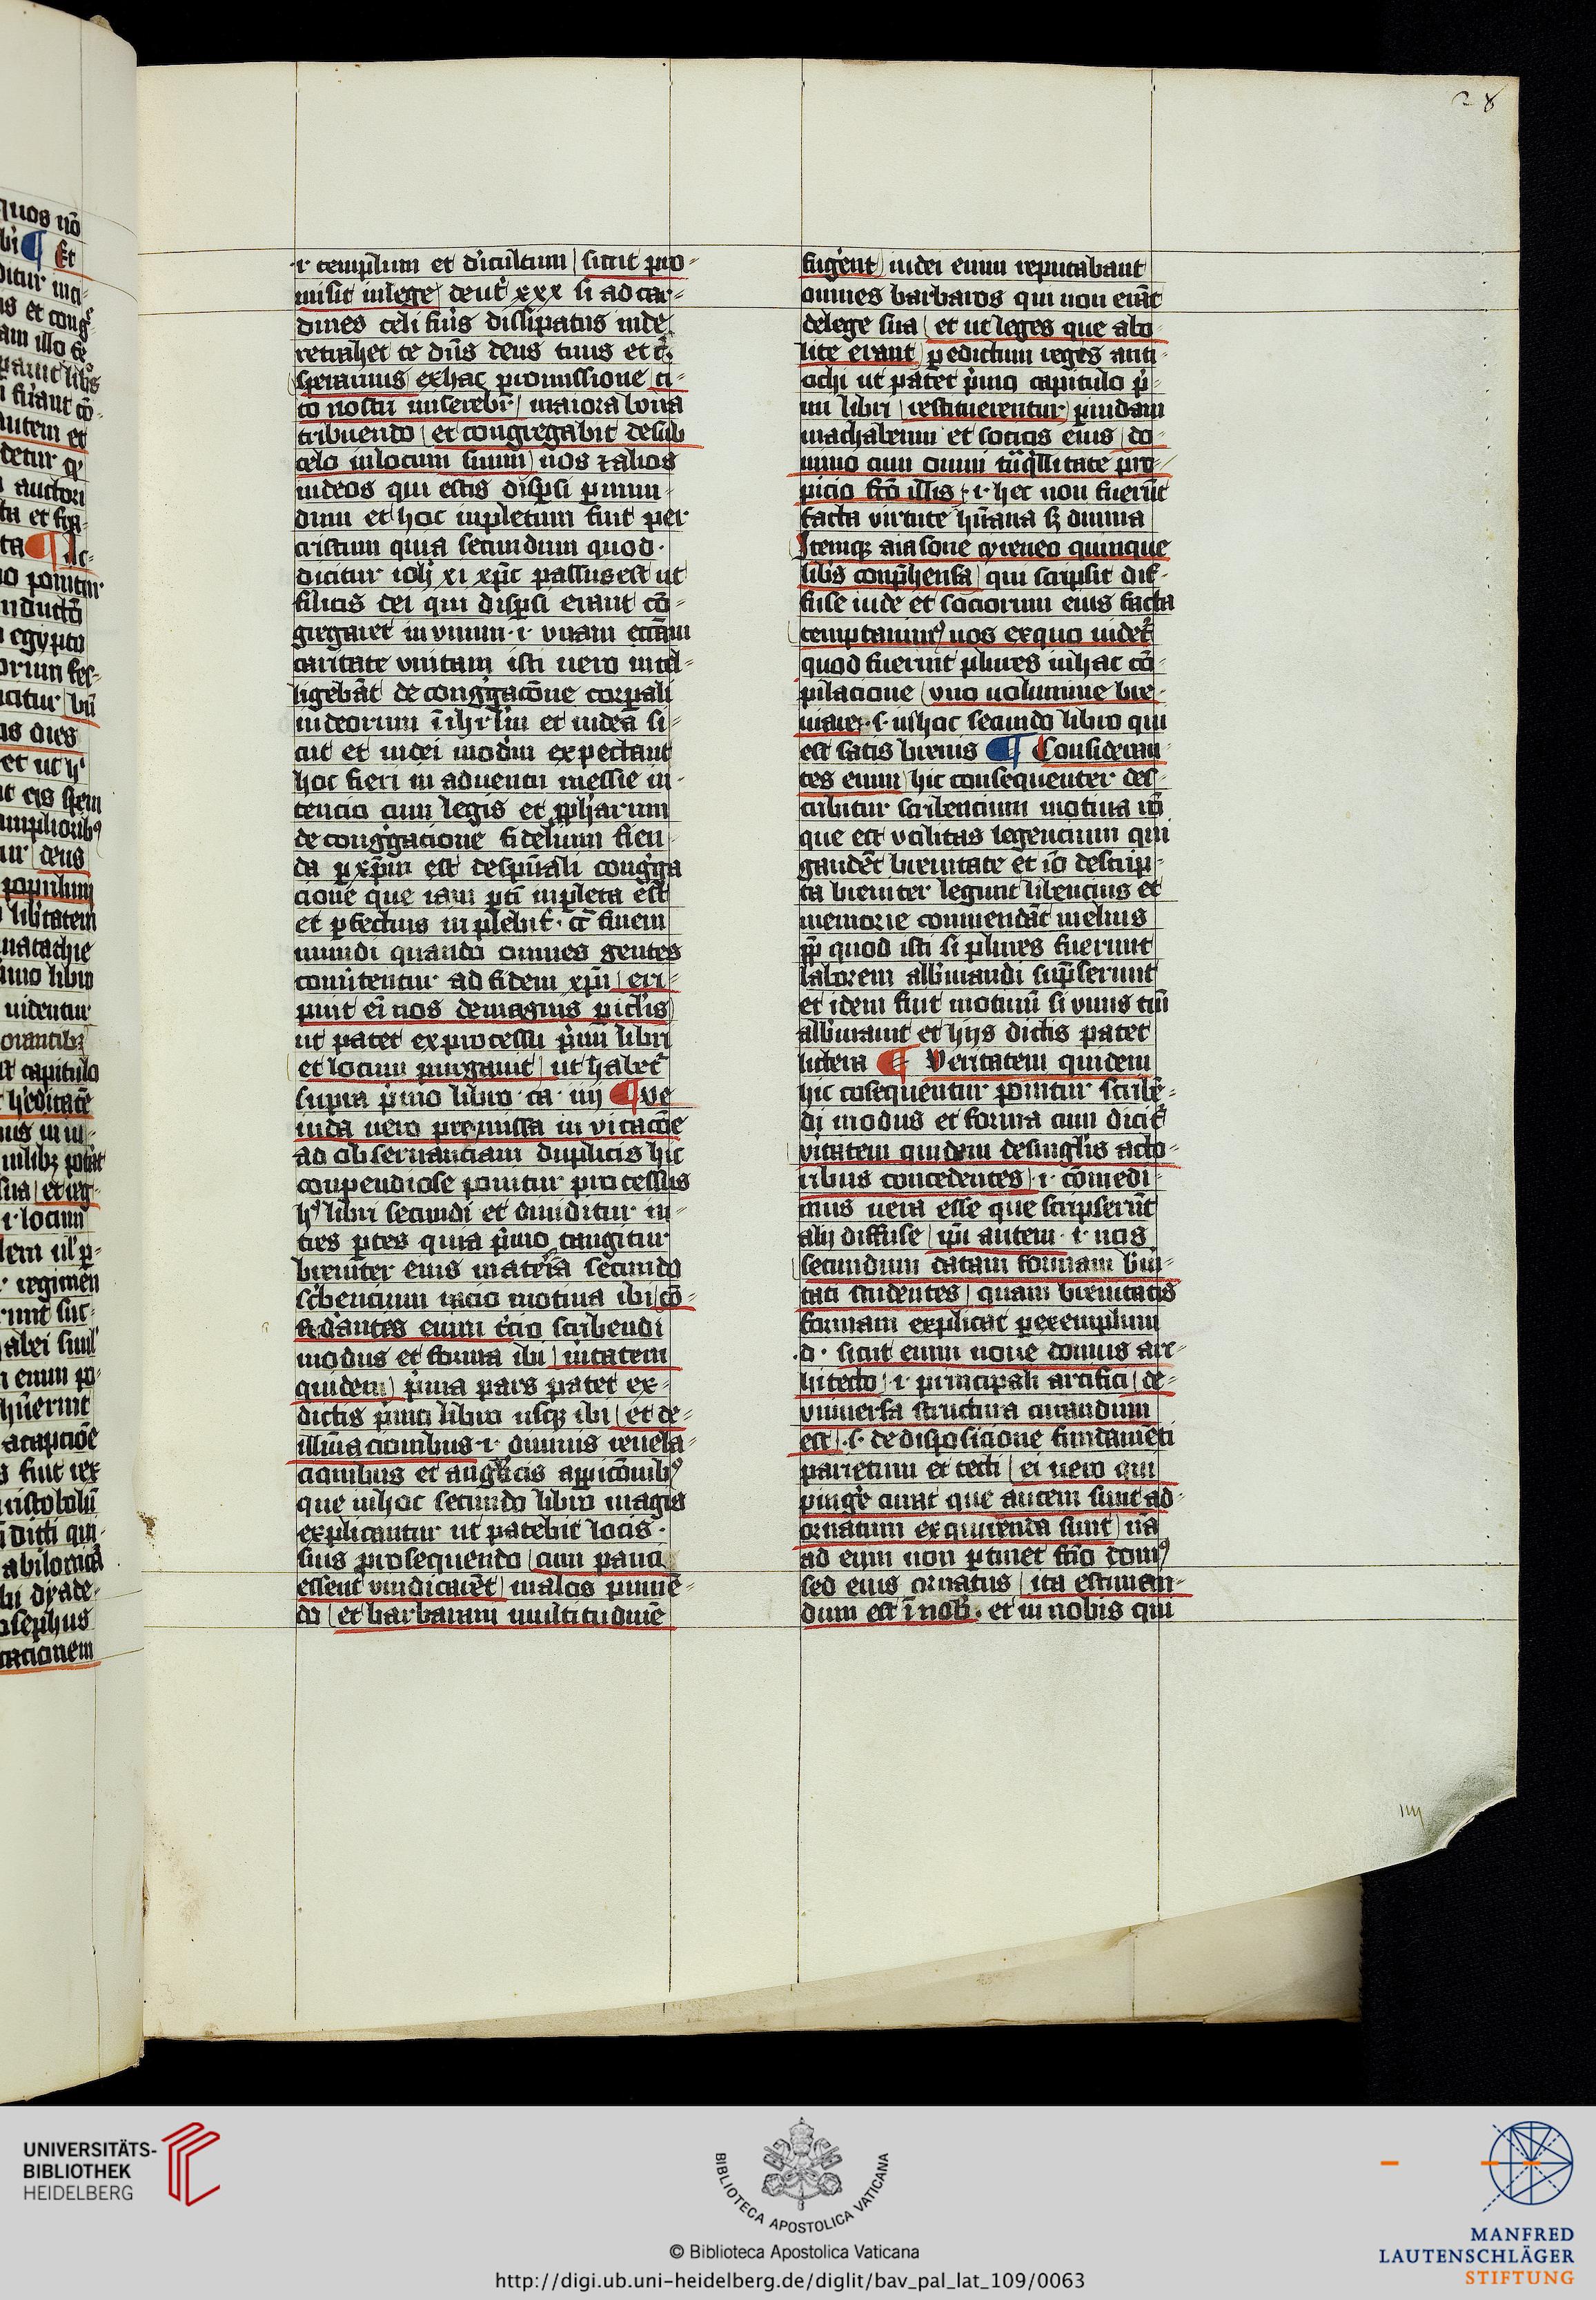 28
·i· templum et dicultum sicut pro-
misit inlege deut' xxx si ad car-
dines celi fuis dissipatus inde
retrahet te dñs deus tuus et c̃.
speramus exhac promissione ci-
to nostri miserebr̃ maiora bona
tribuendo et congregabit desub
celo inlocum suum nos ⁊ alios
iudeos qui estis dispsi p mun-
dum et hoc inpletum fuit per
cristum quia secundum quod ·
dicitur ioh' xi xp̃c passus est ut
filios dei qui dispsi erant cõ-
gregaret in vnum ·i· vnam ecc̃am
caritate vnitam isti uero intel-
ligebãt de congg̃acõne corpali
iudeorum ĩ ihrl'm et iudea si-
cut et iudei modñi expectant
hoc fieri in aduentu messie in-
tencio cum legis et pph̃arum
de congg̃acione fidelium fien-
da p xp̃m est despũali congg̃a
cione que iam pti inpleta est
et pfectius inplebit' · c̃ finem
mundi quando omnes gentes
conũtentur ad fidem xpi eri-
puit ei nos demagnis piclis
ut patet exprocessu p̃mi libri
et locum purgauit ut habet'
supra p̃mo libro · ca · iiij ¶ Ve
iuda uero premissa in vitacõe
ad obseruanciam duplicis hic
conpendiose ponitur processus
h' libri secundi et diuiditur in-
tres ptes quia p̃mo tangitur
breuiter eius mater̃ia secundo
sc̃bencium racio motiua ibi cõ-
sid'antes enim t̃cio scribendi
modus et forma ibi uitatem
quidem p̃ma pars patet ex-
dictis p̃mi libro usq; ibi et de-
illũacionibus ·i· diuinis reuela-
cionibus et angl'icis appicõnib'
que inhoc secundo libro magis
explicantur ut patebit locis ·
suis prosequendo cum pauci
essent vindicarẽt malos puniẽ-
do et barbaram multitudinẽ
fugẽnt iudei enim reputabant
omnes barbaros qui non erãt
delege sua et ut leges que abo-
lite erant p edictum regẽs anti-
ochi ut patet p̃mo capitulo p̃-
mi libri restituerentur p iudam
machabeum et socios eius do-
mino cum omni tũq̃llitate pro-
picio fc̃o illis ·i· hec non fuerũt
facta virtute hũana s; diuina
Itemq; aiasone cyreneo quinque
libis conp̃hensa qui scripsit dif-
fuse iude et sociorum eius facta
temptauim' nos exquo uidet̃
quod fuerint plures inhac cõ-
pilacione vno uolumine bre-
uiare · s· inhoc secundo libro qui
est satis breuis ¶ Consideran-
tes enim hic consequenter des-
cribitur scribencium motiua rõ
que est vtilitas legencium qui
gaudẽt breuitate et iõ descrip-
ta breuiter legunt libencius et
memorie commendãt melius
pp̃ quod isti si plures fuerunt
laborem abb'uiandi sup̃serunt
et idem fuit motiuũ si vnus tm̃
abb'uiauit et hijs dictis patet
littera ¶ Veritatem quidem
hic cõsequentur ponitur scribẽ-
di modus et forma cum dicit'
vitatem quidem desingl'is acto-
ribus concedentes ·i· cõmedi-
mus uera esse que scripserũt
alij diffuse ip̃i autem · i· nos
secundum datam formam b'ui-
tati studentes quam breuitatis
formam explicat pexemplum
·d· sicut enim noue domus arc-
hitecto ·i· principali artifici de-
vniuersa structura curandum
est ·s· de disposicione fundamẽti
parietum et tecti ei uero qui
pingẽ curat que autem sunt ad-
ornatum exquirenda sunt nã
ad eum non ptinet fc̃io dom'
sed eius ornatus ita estiman-
dum est ĩ nob' · et in nobis qui
iiij
UNIVERSITÄTS-
BIBLIOTHEK
HEIDELBERG
BIBLIOTECA APOSTOLICA VATICANA
© Biblioteca Apostolica Vaticana
http://digi.ub.uni-heidelberg.de/diglit/bav_pal_lat_109/0063
MANFRED
LAUTENSCHLÄGER
STIFTUNG